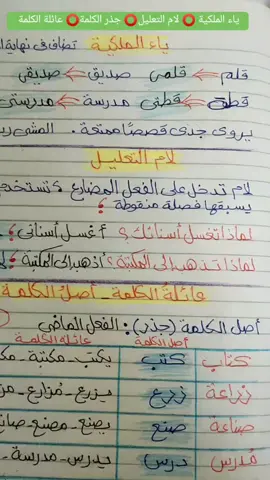 ياء الملكية ⭕ لام التعليل⭕ جذر الكلمة⭕ عائلة الكلمة
ياء الملكية تضاف فى نهاية
قلم قلمى صديق صديقى
قطة قطتى مدرسة مدرستى
يروى جدى قصصًا ممتعة .
لام التعليل
لام تدخل على الفعل المضارع
يسبقها فصلة منقوطة ؛
لماذا تغسل أسنانك ؟ أغسل أسنانى ؛
لماذا تذهب إلى المكتبة ؟ أذهب إلى المكتبة ؛
عائلة الكلمة - أصل الكلمة
أصل الكلمة (جذر) : الفعل الماضى
أصل الكلمة عائلة الكلمة
كتاب كتب يكتب - مكتبة -
زراعة زرع يزرع - مُزارع -
صناعة صنع يصنع - مصنع -
مُدرس درس يدرس - مدرسة -